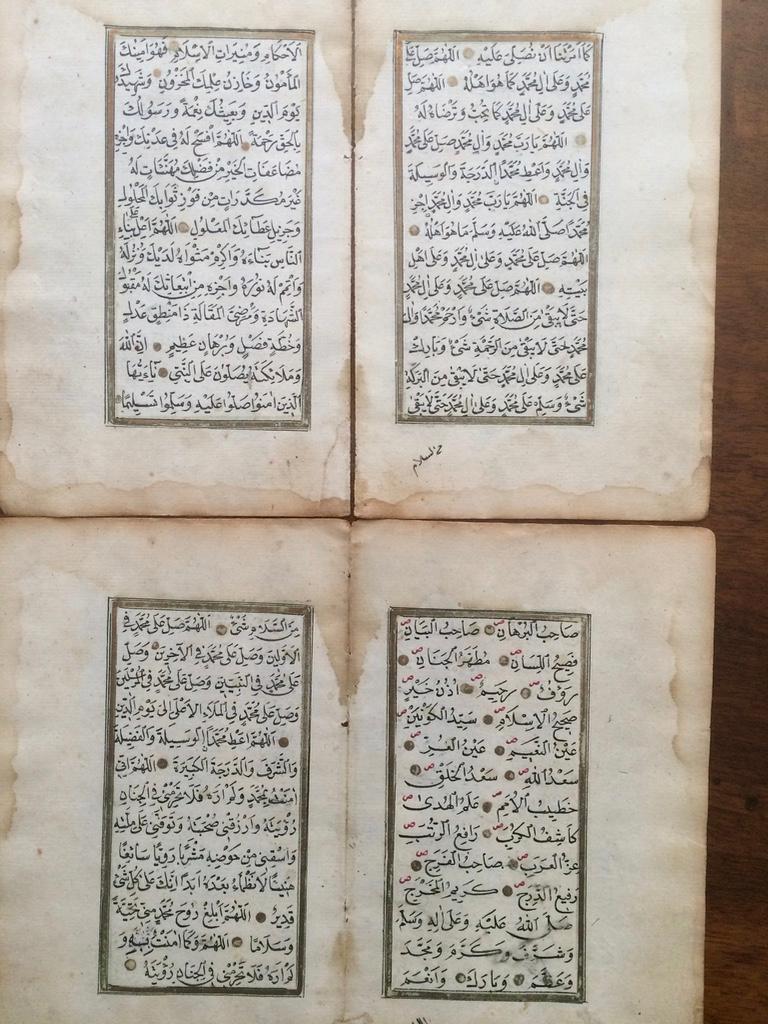 كَمَا اَمَرْتَنَا اَنْ نُصَلِّىَ عَلَيْهِ اَللّٰهُمَّ صَلِّ عَلٰى
مُحَمَّدٍ وَعَلٰى اٰلِ مُحَمَّدٍ كَمَا هُوَ اَهْلُهُ اَللّٰهُمَّ صَلِّ
عَلٰى مُحَمَّدٍ وَعَلٰى اٰلِ مُحَمَّدٍ كَمَا تُحِبُّ وَتَرْضَاهُ لَهُ
اَللّٰهُمَّ يَا رَبَّ مُحَمَّدٍ وَاٰلِ مُحَمَّدٍ صَلِّ عَلٰى مُحَمَّدٍ
وَاٰلِ مُحَمَّدٍ وَاَعْطِ مُحَمَّدًا الدَّرَجَةَ وَالْوَسِيلَةَ
فِى الْجَنَّةِ اَللّٰهُمَّ يَا رَبَّ مُحَمَّدٍ وَاٰلِ مُحَمَّدٍ اِجْزِ
مُحَمَّدًا صَلَّى اللهُ عَلَيْهِ وَسَلَّمَ مَا هُوَ اَهْلُهُ
اَللّٰهُمَّ صَلِّ عَلٰى مُحَمَّدٍ وَعَلٰى اٰلِ مُحَمَّدٍ وَعَلٰى اَهْلِ
بَيْتِهِ اَللّٰهُمَّ صَلِّ عَلٰى مُحَمَّدٍ وَعَلٰى اٰلِ مُحَمَّدٍ
حَتّٰى لَا يَبْقٰى مِنَ الصَّلَاةِ شَىْءٌ وَارْحَمْ مُحَمَّدًا وَاٰلَ
مُحَمَّدٍ حَتّٰى لَا يَبْقٰى مِنَ الرَّحْمَةِ شَىْءٌ وَبَارِكْ
عَلٰى مُحَمَّدٍ وَعَلٰى اٰلِ مُحَمَّدٍ حَتّٰى لَا يَبْقٰى مِنَ الْبَرَكَةِ
شَىْءٌ وَسَلِّمْ عَلٰى مُحَمَّدٍ وَعَلٰى اٰلِ مُحَمَّدٍ حَتّٰى لَا يَبْقٰى
من السلام
الْاَحْكَامِ وَمُنِيرَاتِ الْاِسْلَامِ فَهُوَ اَمِينُكَ
الْمَأْمُونُ وَخَازِنُ عِلْمِكَ الْمَخْزُونِ وَشَهِيدُكَ
يَوْمَ الدِّينِ وَبَعِيثُكَ نِعْمَةً وَرَسُولُكَ
بِالْحَقِّ رَحْمَةً اَللّٰهُمَّ افْسَحْ لَهُ فِى عَدْنِكَ وَاجْزِهِ
مُضَاعَفَاتِ الْخَيْرِ مِنْ فَضْلِكَ مُهَنَّئَاتٍ لَهُ
غَيْرَ مُكَدَّرَاتٍ مِنْ فَوْزِ ثَوَابِكَ الْمَحْلُولِ
وَجَزِيلِ عَطَائِكَ الْمَعْلُولِ اَللّٰهُمَّ اَعْلِ عَلٰى بِنَاءِ
النَّاسِ بِنَاءَهُ وَاَكْرِمْ مَثْوَاهُ لَدَيْكَ وَنُزُلَهُ
وَاَتْمِمْ لَهُ نُورَهُ وَاجْزِهِ مِنِ ابْتِعَاثِكَ لَهُ مَقْبُولَ
الشَّهَادَةِ وَمَرْضِىَّ الْمَقَالَةِ ذَا مَنْطِقٍ عَدْلٍ
وَخُطَّةٍ فَصْلٍ وَبُرْهَانٍ عَظِيمٍ اِنَّ اللهَ
وَمَلَائِكَتَهُ يُصَلُّونَ عَلَى النَّبِىِّ يَا اَيُّهَا
الَّذِينَ اٰمَنُوا صَلُّوا عَلَيْهِ وَسَلِّمُوا تَسْلِيمًا
صَاحِبُ الْبُرْهَانِ ص صَاحِبُ الْبَيَانِ ص
فَصِيحُ اللِّسَانِ ص مُطَهَّرُ الْجَنَانِ ص
رَؤُفٌ ص رَحِيمٌ ص اُذُنُ خَيْرٍ ص
صَحِيحُ الْاِسْلَامِ ص سَيِّدُ الْكَوْنَيْنِ ص
عَيْنُ النَّعِيمِ ص عَيْنُ الْغُرِّ ص
سَعْدُ اللهِ ص سَعْدُ الْخَلْقِ ص
خَطِيبُ الْاُمَمِ ص عَلَمُ الْهُدٰى ص
كَاشِفُ الْكُرَبِ ص رَافِعُ الرُّتَبِ ص
عِزُّ الْعَرَبِ ص صَاحِبُ الْفَرَجِ ص
رَفِيعُ الدَّرَجِ ص كَرِيمُ الْمَخْرَجِ ص
صَلَّى اللهُ عَلَيْهِ وَعَلٰى اٰلِهِ وَسَلَّمَ
وَشَرَّفَ وَكَرَّمَ وَمَجَّدَ
وَعَظَّمَ وَبَارَكَ وَاَنْعَمَ
مِنَ السَّلَامِ شَىْءٌ اَللّٰهُمَّ صَلِّ عَلٰى مُحَمَّدٍ فِى
الْاَوَّلِينَ وَصَلِّ عَلٰى مُحَمَّدٍ فِى الْاٰخِرِينَ وَصَلِّ
عَلٰى مُحَمَّدٍ فِى النَّبِيِّينَ وَصَلِّ عَلٰى مُحَمَّدٍ فِى الْمُرْسَلِينَ
وَصَلِّ عَلٰى مُحَمَّدٍ فِى الْمَلَاءِ الْاَعْلٰى اِلٰى يَوْمِ الدِّينِ
اَللّٰهُمَّ اَعْطِ مُحَمَّدًا الْوَسِيلَةَ وَالْفَضِيلَةَ
وَالشَّرَفَ وَالدَّرَجَةَ الْكَبِيرَةَ اَللّٰهُمَّ اِنِّى
اٰمَنْتُ بِمُحَمَّدٍ وَلَمْ اَرَهُ فَلَا تَحْرِمْنِى فِى الْجِنَانِ
رُؤْيَتَهُ وَارْزُقْنِى صُحْبَتَهُ وَتَوَفَّنِى عَلٰى مِلَّتِهِ
وَاسْقِنِى مِنْ حَوْضِهِ مَشْرَبًا رَوِيًّا سَائِغًا
هَنِيئًا لَا نَظْمَأُ بَعْدَهُ اَبَدًا اِنَّكَ عَلٰى كُلِّ شَىْءٍ
قَدِيرٌ اَللّٰهُمَّ اَبْلِغْ رُوحَ مُحَمَّدٍ مِنِّى تَحِيَّةً
وَسَلَامًا اَللّٰهُمَّ وَكَمَا اٰمَنْتُ بِهِ وَ
لَمْ اَرَهُ فَلَا تَحْرِمْنِى فِى الْجِنَانِ رُؤْيَتَهُ